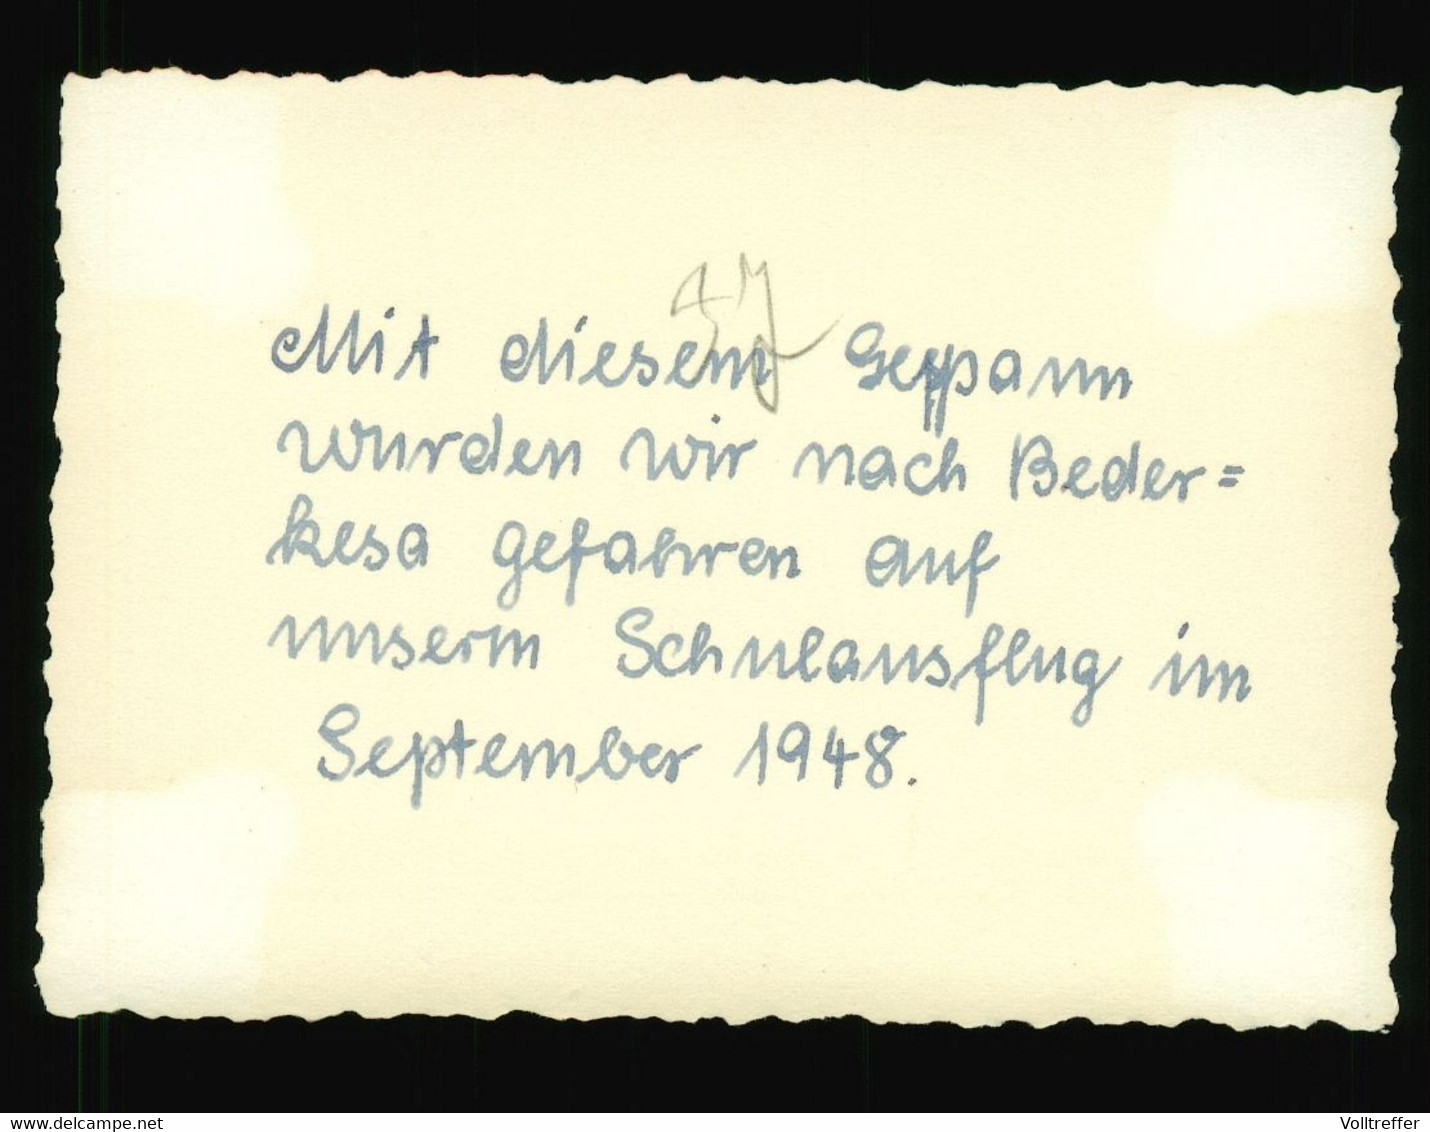 Mit diesem Gespann
wurden wir nach Beder=
kesa gefahren auf
unserm Schulausflug im
September 1948.
www.delcampe.net
Volltreffer